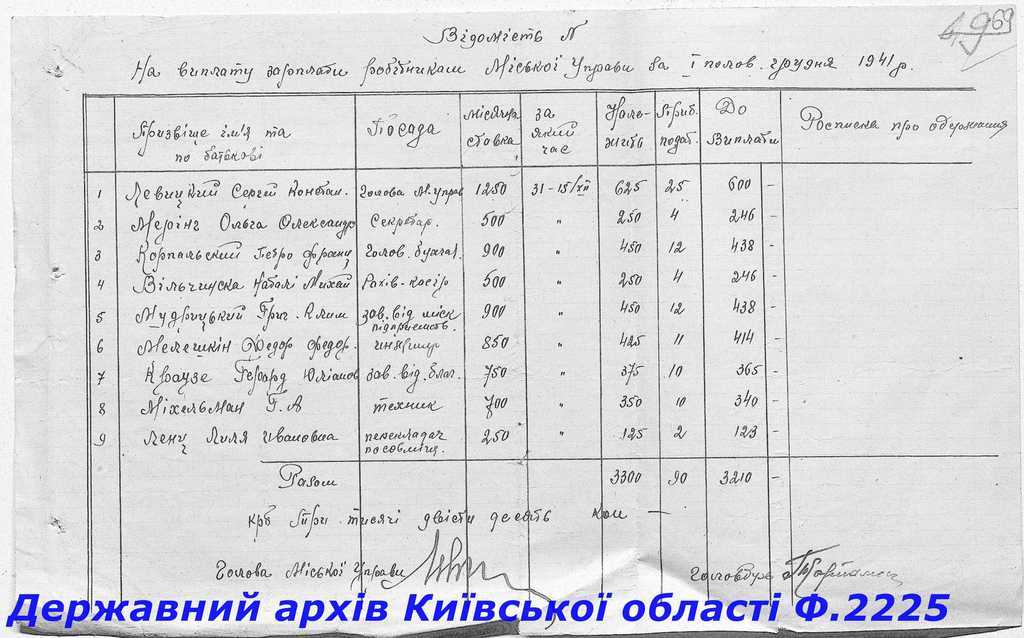 69
49
Відомість N
На виплату зарплати робітникам Міської Управи за I полов. грудня 1941 р.
Призвіще ім'я та по батькові Посада місячна ставка за який час Належить Приб. подат. До Виплати Росписка про одержання
1 Левицкий Сергій Констан. Голова М. управ 1250 31-15/XII 625 25 600 -
2 Мерінг Ольга Олександр Секретар. 500 " 250 4 246 -
3 Корпальский Петро Франц Голов. бухгал. 900 " 450 12 438 -
4 Вільчинска Наталі Михай Рахів-касір 500 " 250 4 246 -
5 Мудрицький Григ. Клим зав. від міск підприємств. 900 " 450 12 438 -
6 Мелешкін Федор Федор. инженир 850 " 425 11 414 -
7 Краузе Герард Юліанов зав. від. благ. 750 " 375 10 365 -
8 Міхельман Г. А техник 700 " 350 10 340 -
9 Ленц Лиля Ивановна перекладач 250 " 125 2 123 -
Разом 3300 90 3210 -
крб Три тисячі двісти десять коп —
Голова Міської Управи Головбух
Державний архів Київської області Ф.2225